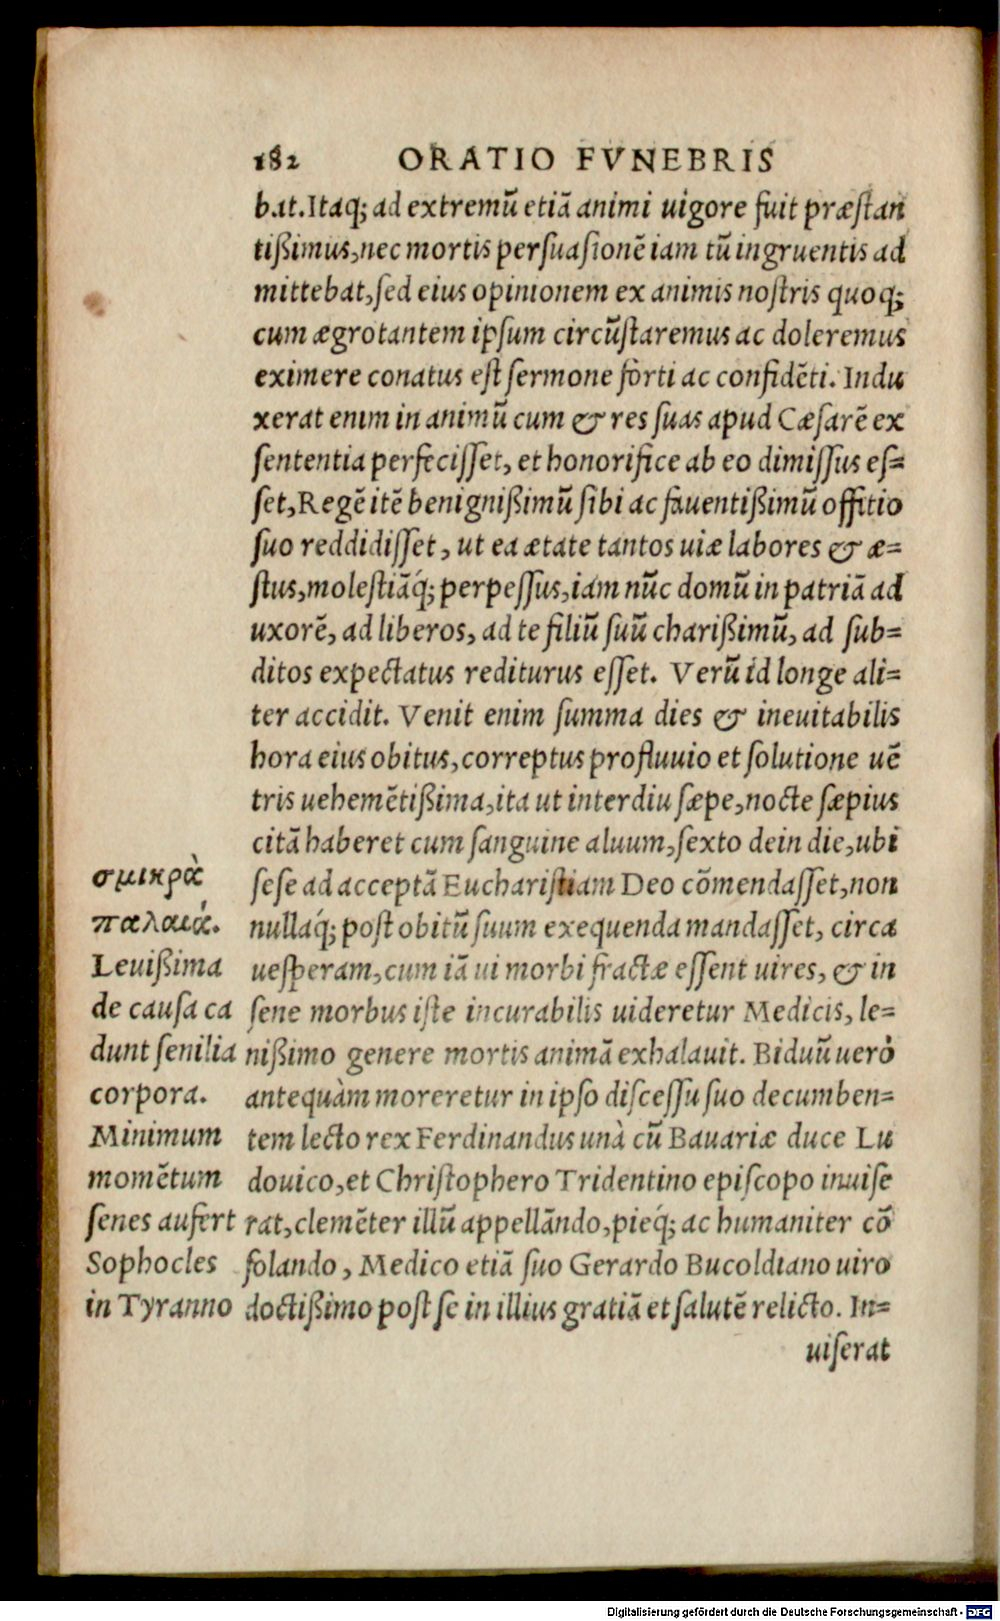 182 ORATIO FVNEBRIS
bat. Itaq; ad extremũ etiã animi uigore fuit præstan
tißimus, nec mortis persuasionẽ iam tũ ingruentis ad
mittebat, sed eius opinionem ex animis nostris quoq;
cum ægrotantem ipsum circũstaremus ac doleremus
eximere conatus est sermone forti ac confidẽti. Indu
xerat enim in animũ cum & res suas apud Cæsarẽ ex
sententia perfecisset, et honorifice ab eo dimissus es=
set, Regẽ itẽ benignißimũ sibi ac fauentißimũ offitio
suo reddidisset, ut ea ætate tantos uiæ labores & æ=
stus, molestiãq́; perpessus, iam nũc domũ in patriã ad
uxorẽ, ad liberos, ad te filiũ suũ charißimũ, ad sub=
ditos expectatus rediturus esset. Verũ id longe ali=
ter accidit. Venit enim summa dies & ineuitabilis
hora eius obitus, correptus profluuio et solutione uẽ
tris uehemẽtißima, ita ut interdiu sæpe, nocte sæpius
citã haberet cum sanguine aluum, sexto dein die, ubi
sese ad acceptã Eucharistiam Deo cõmendasset, non
nullaq́; post obitũ suum exequenda mandasset, circa
uesperam, cum iã ui morbi fractæ essent uires, & in
sene morbus iste incurabilis uideretur Medicis, le=
nißimo genere mortis animã exhalauit. Biduũ uerò
antequàm moreretur in ipso discessu suo decumben=
tem lecto rex Ferdinandus unà cũ Bauariæ duce Lu
douico, et Christophero Tridentino episcopo inuise
rat, clemẽter illũ appellãndo, pieq́; ac humaniter cõ
solando, Medico etiã suo Gerardo Bucoldiano uiro
doctißimo post se in illius gratiã et salutẽ relicto. In=
uiserat
σμικρὰ
παλαιά.
Leuißima
de causa ca
dunt senilia
corpora.
Minimum
momẽtum
senes aufert
Sophocles
in Tyranno
Digitalisierung gefördert durch die Deutsche Forschungsgemeinschaft - DFG